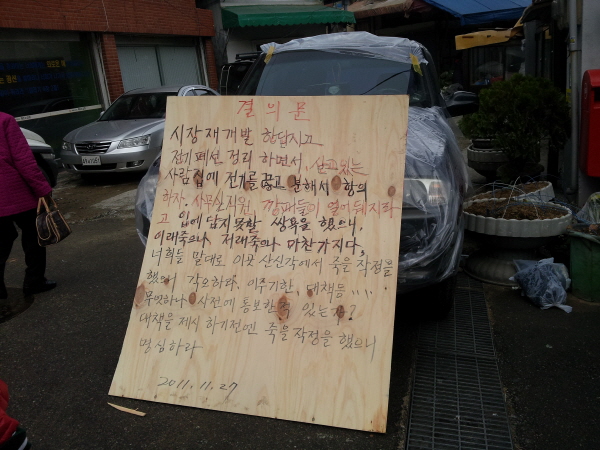 결의문
시장재개발 한답시고
전기폐선 정리 하면서, 살고있는
사람집에 전기를 끊고 분해서 항의
하자. 사무실직원, 깡패들이 열어둬지라
고 입에 담지못할 쌍욕을 했으니,
이래죽으나 저래죽으나 마찬가지다,
너희들 말대로 이곳 산신각에서 죽을 작정을
했으니 각오하라, 이주기한, 대책등.....
무엇하나 사전에 통보한적 있는가?
대책을 제시 하기전엔 죽을 작정을 했으니
명심하라
2011. 11. 27